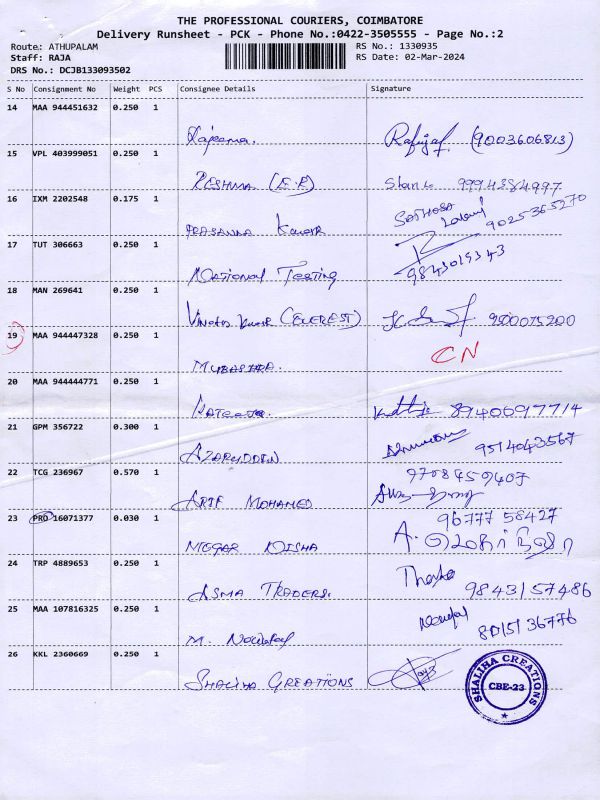 THE PROFESSIONAL COURIERS, COIMBATORE
Delivery Runsheet - PCK - Phone No.:0422-3505555 - Page No.:2
Route: ATHUPALAM RS No.: 1330935
Staff: RAJA RS Date: 02-Mar-2024
DRS No.: DCJB133093502
S No Consignment No Weight PCS Consignee Details Signature
14 MAA 944451632 0.250 1
(9003606813)
15 VPL 403999051 0.250 1
RESHMA 9994384997
16 IXM 2202548 0.175 1
PRASANNA Kumar 9025365270
17 TUT 306663 0.250 1
National Testing 9843019343
18 MAN 269641 0.250 1
(EVEREST) 9500075200
19 MAA 944447328 0.250 1
CN
MUBASHIRA.
20 MAA 944444771 0.250 1
8940697714
21 GPM 356722 0.300 1
AZARUDDEN 9514043567
22 TCG 236967 0.570 1
9708459407
ARIF MOHAMED
23 PRO 16071377 0.030 1
96777 58427
NEGAR NISHA A.
24 TRP 4889653 0.250 1
ASMA TRADERS. 9843157486
25 MAA 107816325 0.250 1
M. 80151 36776
26 KKL 2360669 0.250 1
SHALIHA CREATIONS
SHALIHA CREATIONS
CBE-23